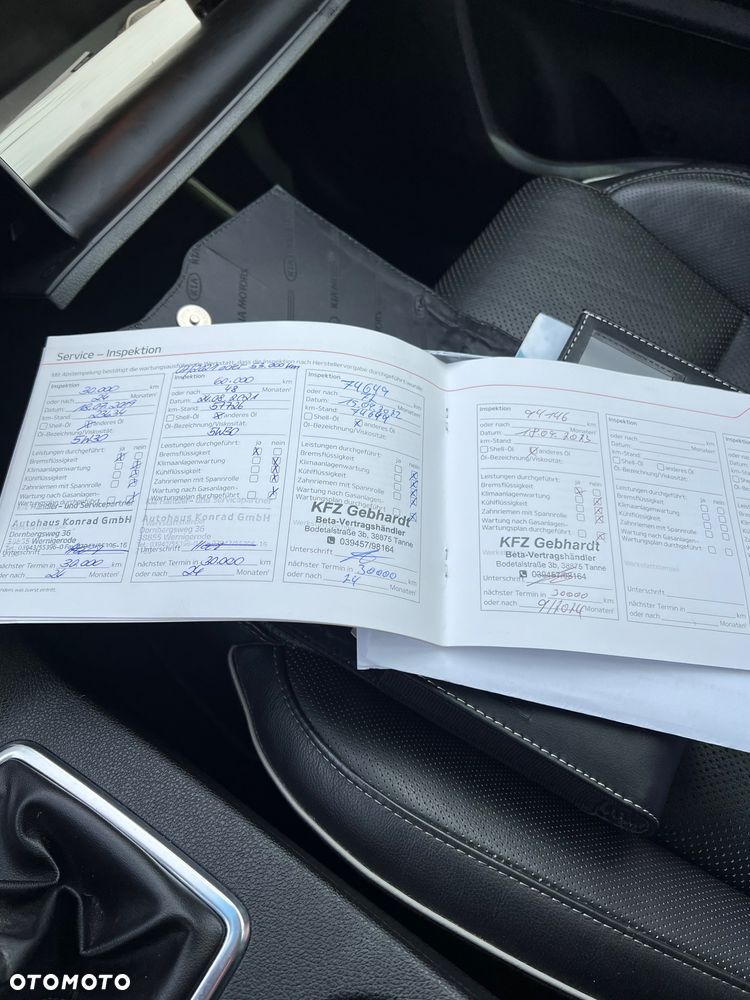 KIA MOTORS
KIA
Service – Inspektion
Mit Abstempelung bestätigt die wartungsausführende Werkstatt, dass die Inspektion nach Herstellervorgabe durchgeführt wurde.
Inspektion
30.000 km
oder nach 24 Monaten
Datum:
km-Stand:
Shell-Öl X anderes Öl
Öl-Bezeichnung/Viskosität:
5W30
Leistungen durchgeführt: ja nein
Bremsflüssigkeit
Klimaanlagenwartung
Kühlflüssigkeit
Zahnriemen mit Spannrolle
Wartung nach Gasanlagen-
Wartungsplan durchgeführt
Händler- und Servicepartner
Autohaus Konrad GmbH
Dornbergsweg 36
38855 Wernigerode
Unterschrift
nächster Termin in 30.000 km
oder nach 24 Monaten!
Inspektion
60.000 km
oder nach 48 Monaten!
Datum: 24.08.2021
km-Stand: 57726
Shell-Öl X anderes Öl
Öl-Bezeichnung/Viskosität:
5W30
Leistungen durchgeführt: ja nein
Bremsflüssigkeit
Klimaanlagenwartung
Kühlflüssigkeit
Zahnriemen mit Spannrolle
Wartung nach Gasanlagen-
Wartungsplan durchgeführt
Autohaus Konrad GmbH
Dornbergsweg 36
38855 Wernigerode
Unterschrift
nächster Termin in 30.000 km
oder nach 24 Monaten!
Inspektion
74649 km
oder nach Monaten!
Datum:
km-Stand:
Shell-Öl X anderes Öl
Öl-Bezeichnung/Viskosität:
Leistungen durchgeführt: ja nein
Bremsflüssigkeit
Klimaanlagenwartung
Kühlflüssigkeit
Zahnriemen mit Spannrolle
Wartung nach Gasanlagen-
Wartungsplan durchgeführt
KFZ Gebhardt
Beta-Vertragshändler
Bodetalstraße 3b, 38875 Tanne
039457/98164
Unterschrift
nächster Termin in 30000 km
oder nach 24 Monaten!
Inspektion
94146 km
oder nach Monaten!
Datum: 18.09.2023
km-Stand:
Shell-Öl X anderes Öl
Öl-Bezeichnung/Viskosität:
Leistungen durchgeführt: ja nein
Bremsflüssigkeit
Klimaanlagenwartung
Kühlflüssigkeit
Zahnriemen mit Spannrolle
Wartung nach Gasanlagen-
Wartungsplan durchgeführt
KFZ Gebhardt
Beta-Vertragshändler
Bodetalstraße 3b, 38875 Tanne
039457/98164
Unterschrift
nächster Termin in 30000 km
oder nach 9/2024 Monaten!
Inspektion
km
oder nach Monaten!
Datum:
km-Stand:
Shell-Öl anderes Öl
Öl-Bezeichnung/Viskosität:
Leistungen durchgeführt: ja nein
Bremsflüssigkeit
Klimaanlagenwartung
Kühlflüssigkeit
Zahnriemen mit Spannrolle
Wartung nach Gasanlagen-
Wartungsplan durchgeführt
Werkstattstempel
Unterschrift
nächster Termin in km
oder nach Monaten!
OTOMOTO